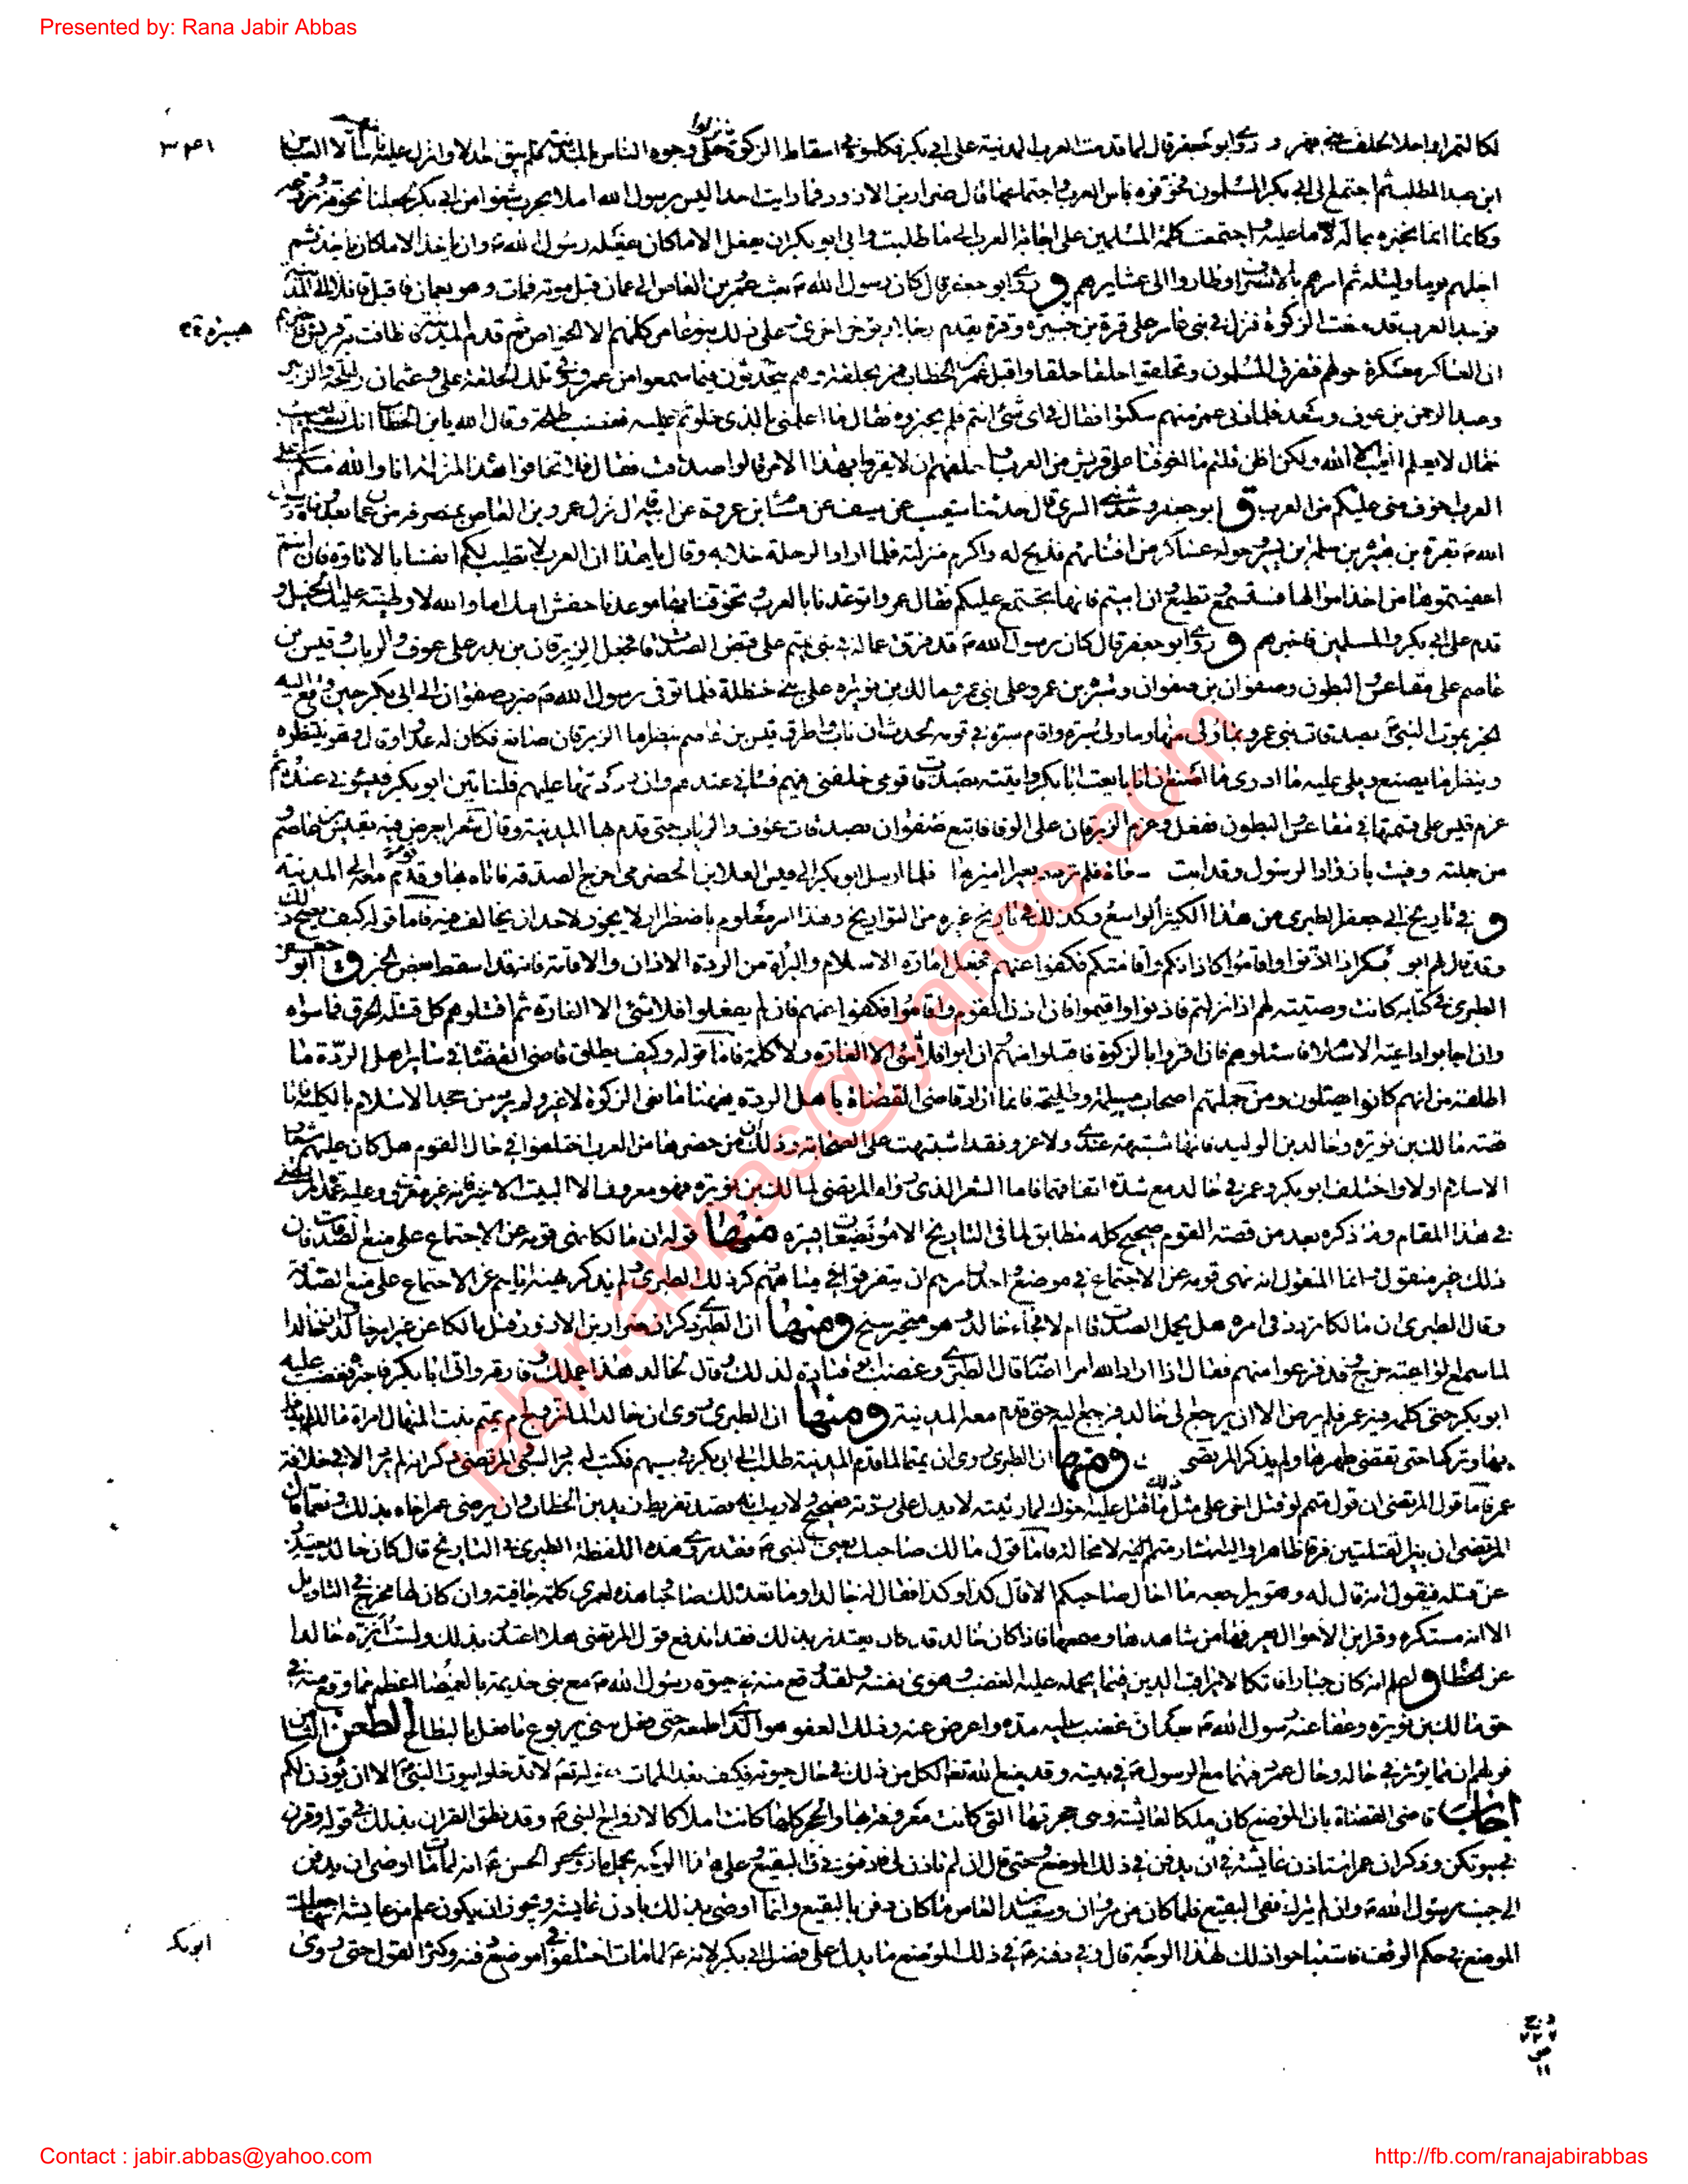 Presented by: Rana Jabir Abbas
وروى ابو جعفر قال لما قدمت العرب المدينة على ابى بكر فكلموه فى اسقاط الزكوة نزلوا على وجوه الناس بالمدينة فلم يبق احد الا وانزل عليه ناسا الا العباس
ابن عبد المطلب ثم اجتمع الى ابى بكر المسلمون فخوفوه باس العرب واجتماعها قال ضرار بن الازور فما رايت احدا ليس رسول الله املا بحرب شعواء من ابى بكر فجعلنا نخوفه ونروعه
وكانما انما نخبره بما له لا ما عليه واجتمعت كلمة المسلمين على اجابة العرب الى ما طلبت وابى ابو بكر ان يفعل الا ما كان يفعله رسول الله وان ياخذ الا ما كان ياخذ ثم
اجلهم يوما وليلة ثم امرهم بالانصراف وطاروا الى عشايرهم وروى ابو جعفر قال كان رسول الله بعث عمرو بن العاص الى عمان قبل موته فمات وهو بعمان فاقبل قافلا الى المدينة
هبيرة
فوجد العرب قد منعت الزكوة فنزل فى بنى عامر على قرة بن هبيرة وقرة يقدم رجلا ويؤخر اخرى وعلى ذلك بنو عامر كلهم الا الخواص ثم قدم المدينة فاطافت به قريش
ان العساكر معسكرة حولهم فتفرق المسلمون وتحلقوا حلقا حلقا واقبل عمر بن الخطاب فمر بحلقة وهم يتحدثون فيما سمعوا من عمرو وفى تلك الحلقة على وعثمان وطلحة والزبير
وعبد الرحمن بن عوف وسعد فلما دنى عمر منهم سكتوا فقال فى اى شئ انتم فلم يخبروه فقال ما اعلمنى بالذى خلوتم عليه فغضب طلحة وقال الله يابن الخطاب انك لتعلم الغيب
فقال لا يعلم الغيب الا الله ولكن اظن قلتم ما اخوفنا على قريش من العرب واحلفهم ان لا يقروا بهذا الامر قالوا صدقت فقال فلا تخافوا هذه المنزلة انا والله منكم على
العرب اخوف منى عليكم من العرب قال ابو جعفر وحدثنى السرى قال حدثنا شعيب عن سيف عن هشام بن عروة عن ابيه قال نزل عمرو بن العاص بمنصرفه من عمان بعد وفاة رسول
الله بقرة بن هبيرة بن سلمة بن يسير وحوله عساكر من افنائهم فذبح له واكرم منزلته فلما اراد الرحلة خلا به وقال يا هذا ان العرب لا تطيب لكم انفسا بالاتاوة فان انتم
اعفيتموها من اخذ اموالها فستسمع وتطيع وان ابيتم فانها تجتمع عليكم فقال عمرو اتوعدنا بالعرب وتخوفنا بها موعدنا حفش امك اما والله لاوطئنه عليك الخيل و
قدم على ابى بكر والمسلمين فاخبرهم وروى ابو جعفر قال كان رسول الله قد فرق عماله فى بنى تميم على قبض الصدقات فجعل الزبرقان بن بدر على عوف والرباب وقيس بن
عاصم على مقاعس والبطون وصفوان بن صفوان وسبرة بن عمرو على بنى عمرو ومالك بن نويرة على بنى حنظلة فلما توفى رسول الله ضرب صفوان الى ابى بكر حين وقع اليه
الخبر بموت النبى بصدقات بنى عمرو وبما ولى منها وما ولى سبرة واقام سبرة فى قومه لحدث ان ناب واطرق قيس بن عاصم ينظر ما الزبرقان صانع فكان له عدوا وقال وهو ينتظره
وينظر ما يصنع ويلى عليه ما ادرى ما اصنع ان انا بايعت ابا بكر واتيته بصدقات قومى خلفنى فيهم فساءنى عندهم وان رددتها عليهم فلياتين ابو بكر فيسوءنى عنده ثم
عزم قيس على قسمتها فى مقاعس والبطون ففعل وعزم الزبرقان على الوفاء فاتبع صفوان بصدقات عوف والرباب حتى قدم بها المدينة وقال شعرا يعرض فيه بقيس بن عاصم
من جملته وفيت باذواد الرسول وقد ابت سعاة فلم يردد بعيرا مجيرها فلما ارسل ابو بكر الى قيس العلاء بن الحضرمى اخرج الصدقة فاتاه بها وقدم معه الى المدينة
وفى تاريخ ابى جعفر الطبرى من هذا الكثير الواسع وكذلك فى تاريخ غيره من التواريخ وهذا امر معلوم باضطرار لا يجوز لاحد ان يخالف فيه فاما قوله كيف يصح ذلك
وقد قال لهم ابو بكر اذا اذنوا واقاموا كاذانكم واقامتكم فكفوا عنهم فجعل امارة الاسلام والبراءة من الردة الاذان والاقامة فانه قد اسقط بعض الخبر قال ابو جعفر
الطبرى فى كتابه كانت وصيته لهم اذا نزلتم فاذنوا واقيموا فان اذن القوم واقاموا فكفوا عنهم فان لم يفعلوا فلا شئ الا الغارة ثم اقتلوهم كل قتلة الحرق فما سواه
وان اجابوا داعية الاسلام فسائلوهم فان اقروا بالزكوة فاقبلوا منهم وان ابوا فلا شئ الا الغارة ولا كلمة فاما قوله وكيف يطلق قاضى القضاة فى ساير اهل الردة ما
اطلقه من انهم كانوا يصلون ومن جملتهم اصحاب مسيلمة وطليحة فانما اراد قاضى القضاة باهل الردة ههنا مانعى الزكوة لا غير ولم يرد من جحد الاسلام بالكلية فاما
قصة مالك بن نويرة وخالد بن الوليد فانها مشتبهة عندى ولا غرو فقد اشتبهت على الصحابة وذلك ان من حضرها من العرب اختلفوا فى حال القوم هل كان عليهم شعار
الاسلام اولا واختلف ابو بكر وعمر فى خالد مع شدة اتفاقهما فاما الشعر الذى رواه المرتضى لمالك بن نويرة فهو معروف الا البيت الاخير فانه غير معروف وعليه عمدة المرتضى
فى هذا المقام وما ذكره بعد من قصة القوم صحيح كله مطابق لما فى التاريخ الا مويضعات يسيره منها قوله ان مالكا نهى قومه عن الاجتماع على منع الصدقات فان
ذلك غير منقول وانما المنقول انه نهى قومه عن الاجتماع فى موضع واحد وامرهم ان يتفرقوا فى مياههم ذكر ذلك الطبرى ولم يذكر نهيه اياهم عن الاجتماع على منع الصدقة
وقال الطبرى ان مالكا تردد فى امره هل يحمل الصدقات ام لا فجاءه خالد وهو متحير سبح ومنها ان الطبرى ذكر ان ضرار بن الازور قتل مالكا عن غير امر خالد وان خالدا
لما سمع الواعية خرج وقد فرغوا منهم فقال اذا اراد الله امرا اصابه قال الطبرى وغضب ابو قتادة لذلك وقال لخالد هذا عملك وفارقه واتى ابا بكر فاخبره فغضب عليه
ابو بكر حتى كلمه فيه عمر فلم يرض الا ان يرجع الى خالد فرجع اليه حتى قدم معه المدينة ومنها ان الطبرى روى ان خالدا لما تزوج ام تميم بنت المنهال امراة مالك لم يدخل
بها وتركها حتى تقضى طهرها ولم يذكر المرتضى ذلك ومنها ان الطبرى روى ان متمما لما قدم المدينة طلب الى ابى بكر فى سبيهم فكتب له برد السبى والمرتضى ذكر انه لم يرد الا فى خلافة
عمر فاما قول المرتضى ان قول متمم لو قتل اخى على مثل ما قتل عليه اخوك لما رثيته لا يدل على ردته فصحيح ولا ريب انه قصد تقريظ زيد بن الخطاب وان يرضى عمر اخاه بذلك ونعما قال
المرتضى ان بين القتلتين فرقا ظاهرا واليه اشار متمم لا محالة فاما قول مالك صاحبك يعنى النبى فقد روى هذه اللفظة الطبرى فى التاريخ قال كان خالد يعتذر
عن قتله فيقول انه قال له وهو يراجعه ما اخال صاحبكم الا قال كذا وكذا فقال له خالد اوما تعده لك صاحبا هذه لعمرى كلمة جافية وان كان لها مخرج فى التاويل
الا انه مستكره وقراين الاحوال يعرفها من شاهدها وسمعها فاذا كان خالد قد كان يعتذر بذلك فقد اندفع قول المرتضى هلا اعتذر بذلك ولست انزه خالدا
عن الخطاء واعلم انه كان جبارا فاتكا لا يراقب الدين فيما يحمله عليه الغضب وهوى نفسه ولقد وقع منه فى حيوة رسول الله مع بنى خذيمة بالغميصا اعظم مما وقع منه فى
حق مالك بن نويرة وعفا عنه رسول الله بعد ان غضب عليه مدة واعرض عنه وذلك العفو هو الذى اطمعه حتى فعل ببنى يربوع ما فعل بالبطاح الطعن الثامن
قولهم ان مما يؤثر فى حاله وحال عمر دفنهما مع الرسول فى بيته وقد منع الله تعالى الكل من ذلك فى حال حيوته فكيف بعد الممات بقوله تعالى لا تدخلوا بيوت النبى الا ان يؤذن لكم
اجاب قاضى القضاة بان الموضع كان ملكا لعائشة وهى حجرتها التى كانت معروفة بها والحجر كلها كانت املاكا لازواج النبى وقد نطق القران بذلك فى قوله وقرن
فى بيوتكن وذكر ان عمر استاذن عايشة فى ان يدفن فى ذلك الموضع وحتى قال ان لم تاذن لى فادفنونى فى البقيع وعلى هذا الوجه يحمل ما روى عن الحسن انه لما مات اوصى ان يدفن
الى جنب رسول الله وان لم يترك ففى البقيع فلما كان من مروان وسعيد بن العاص ما كان دفن بالبقيع وانما اوصى بذلك باذن عايشة ويجوز ان يكون علم من عايشة انها جعلت
الموضع فى حكم الوقف فاستباحوا ذلك لهذا الوجه قال وفى دفنه فى ذلك الموضع ما يدل على فضل ابى بكر لانه لما مات اختلفوا فى موضع دفنه وكثر القول حتى روى
ابو بكر
Contact : jabir.abbas@yahoo.com
http://fb.com/ranajabirabbas
jabir.abbas@yahoo.com